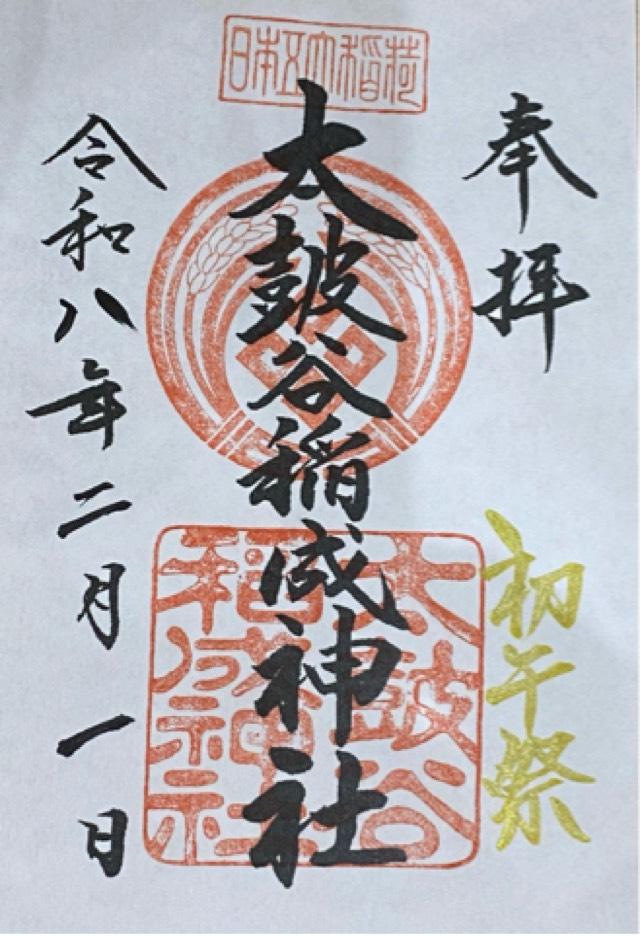 日本五大稲荷
奉拝
初午祭
太皷谷稲成神社
太鼓谷
稲成神社
令和八年二月一日